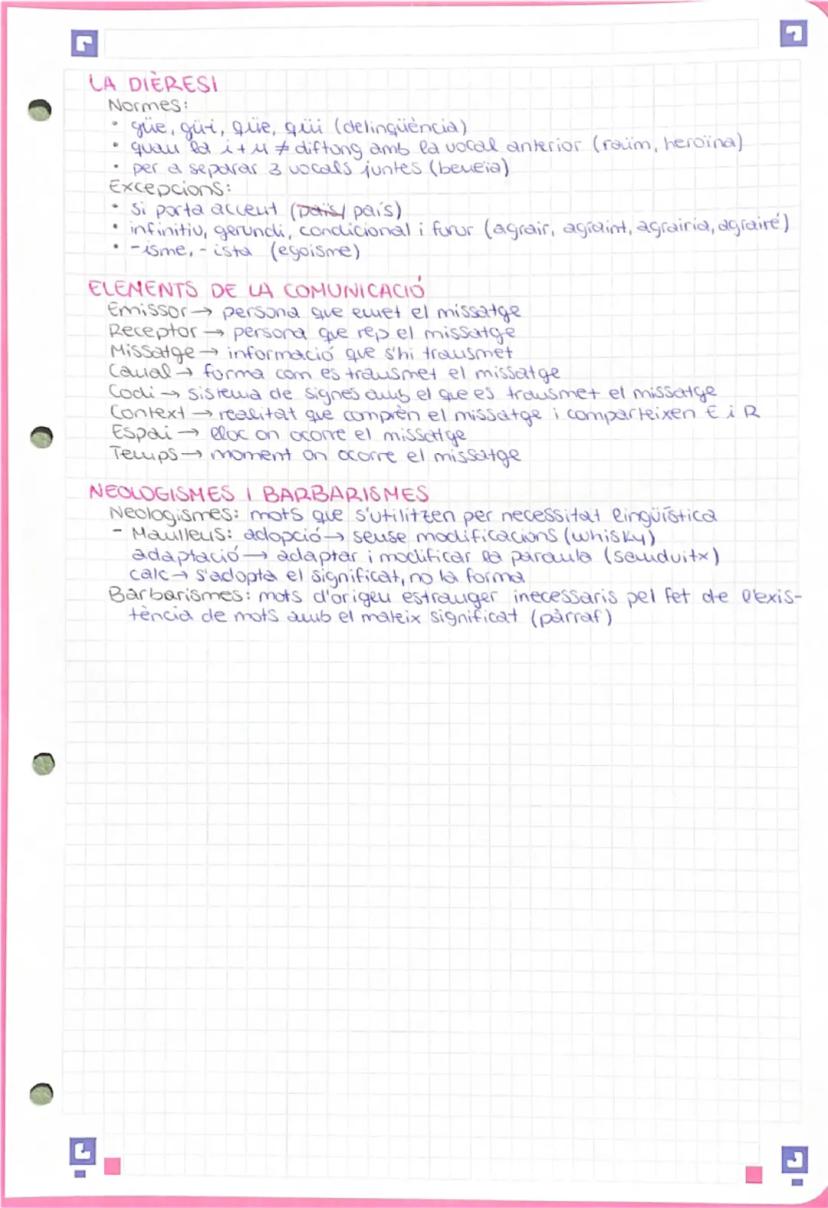 LA DIÈRESI
Normes:
• güe, güi, qüe, qüi (delinqüència)
• quan la i + u ≠ diftong amb la vocal anterior (raïm, heroïna)
• per a separar 3 vocals juntes (beveïa)
Excepcions:
• si porta accent (país)
• infinitiu, gerundi, condicional i futur (agrair, agraint, agrairia, agrairé)
• -isme, -ista (egoisme)
ELEMENTS DE LA COMUNICACIÓ
Emissor → persona que emet el missatge
Receptor → persona que rep el missatge
Missatge → informació que s'hi transmet
Canal → forma com es transmet el missatge
Codi → sistema de signes amb el que es transmet el missatge
Context → realitat que comprèn el missatge i comparteixen E i R
Espai → lloc on ocorre el missatge
Temps → moment on ocorre el missatge
NEOLOGISMES I BARBARISMES
Neologismes: mots que s'utilitzen per necessitat lingüística
- Manlleus: adopció → sense modificacions (whisky)
adaptació → adaptar i modificar la paraula (sanduitx)
calc → s'adopta el significat, no la forma
Barbarismes: mots d'origen estranger inecessaris pel fet de l'exis-
tència de mots amb el mateix significat (pàrraf)